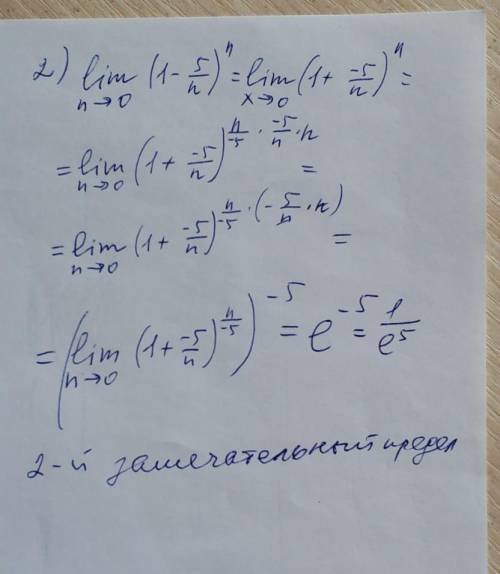 2) lim n→0 (1 - 5/n)^n = lim x→0 (1 + -5/n)^n =
= lim n→0 (1 + -5/n)^(n/-5 · -5/n · n) =
= lim n→0 (1 + -5/n)^(n/-5 · (-5/n · n)) =
= (lim n→0 (1 + -5/n)^(n/-5))^-5 = e^-5 = 1/e^5
2-й замечательный предел